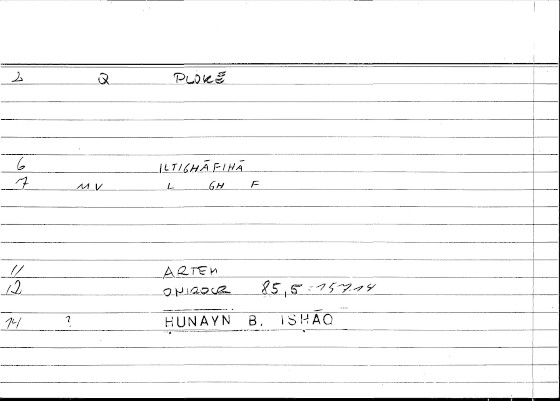 2 Q PLOKĒ
6 ILTIGHĀFIHĀ
7 MV L GH F
11 ARTEM
12 ONIROCR 85,5:15714
14 ? ḤUNAYN B. ISḤĀQ